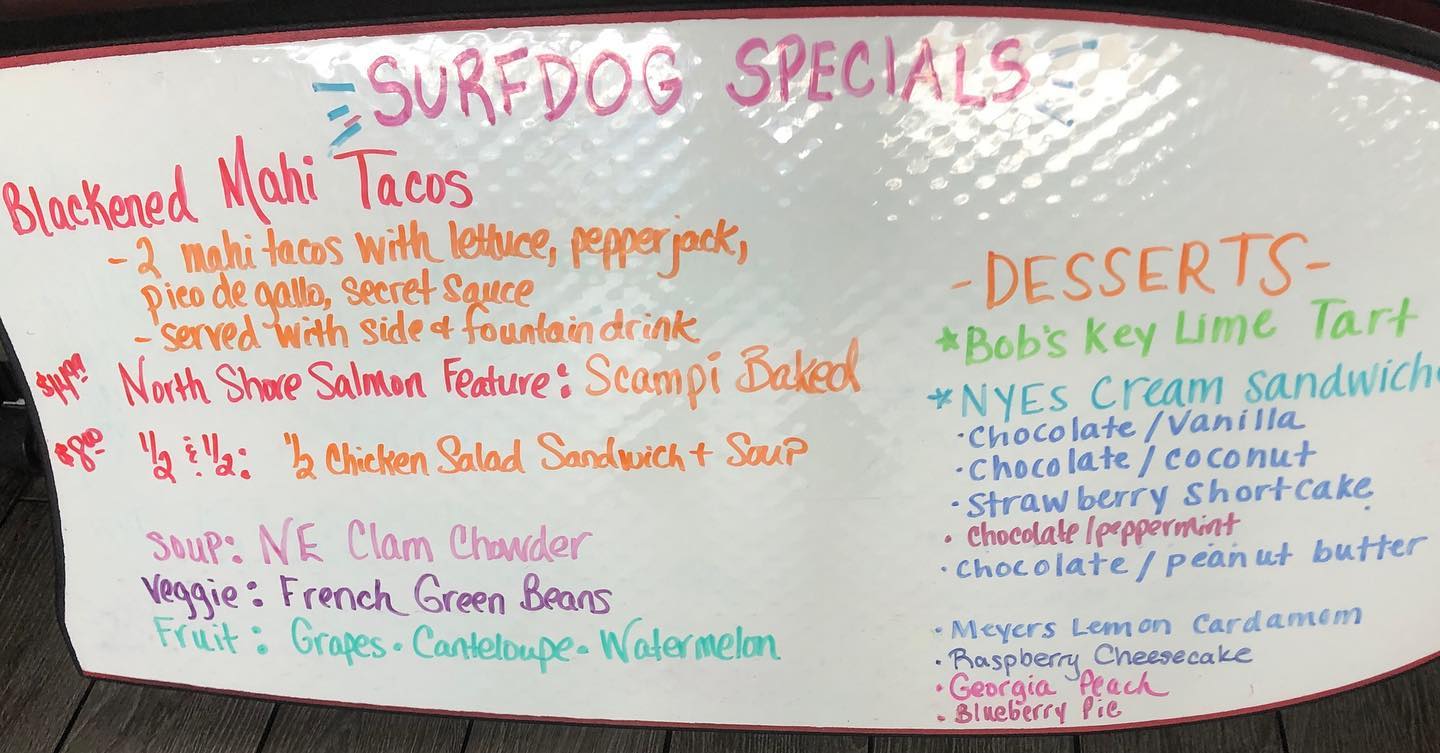 SURFDOG SPECIALS
Blackened Mahi Tacos
- 2 mahi tacos with lettuce, pepperjack,
pico de gallo, secret sauce
- served with side & fountain drink
$14.99 North Shore Salmon Feature: Scampi Baked
$8.00 1/2 & 1/2: 1/2 Chicken Salad Sandwich + Soup
Soup: NE Clam Chowder
Veggie: French Green Beans
Fruit: Grapes • Canteloupe • Watermelon
- DESSERTS -
*Bob's Key Lime Tart
*NYEs Cream Sandwich
• Chocolate / Vanilla
• Chocolate / coconut
• Strawberry Shortcake
• Chocolate / peppermint
• Chocolate / peanut butter
• Meyers Lemon Cardamom
• Raspberry Cheesecake
• Georgia Peach
• Blueberry Pie